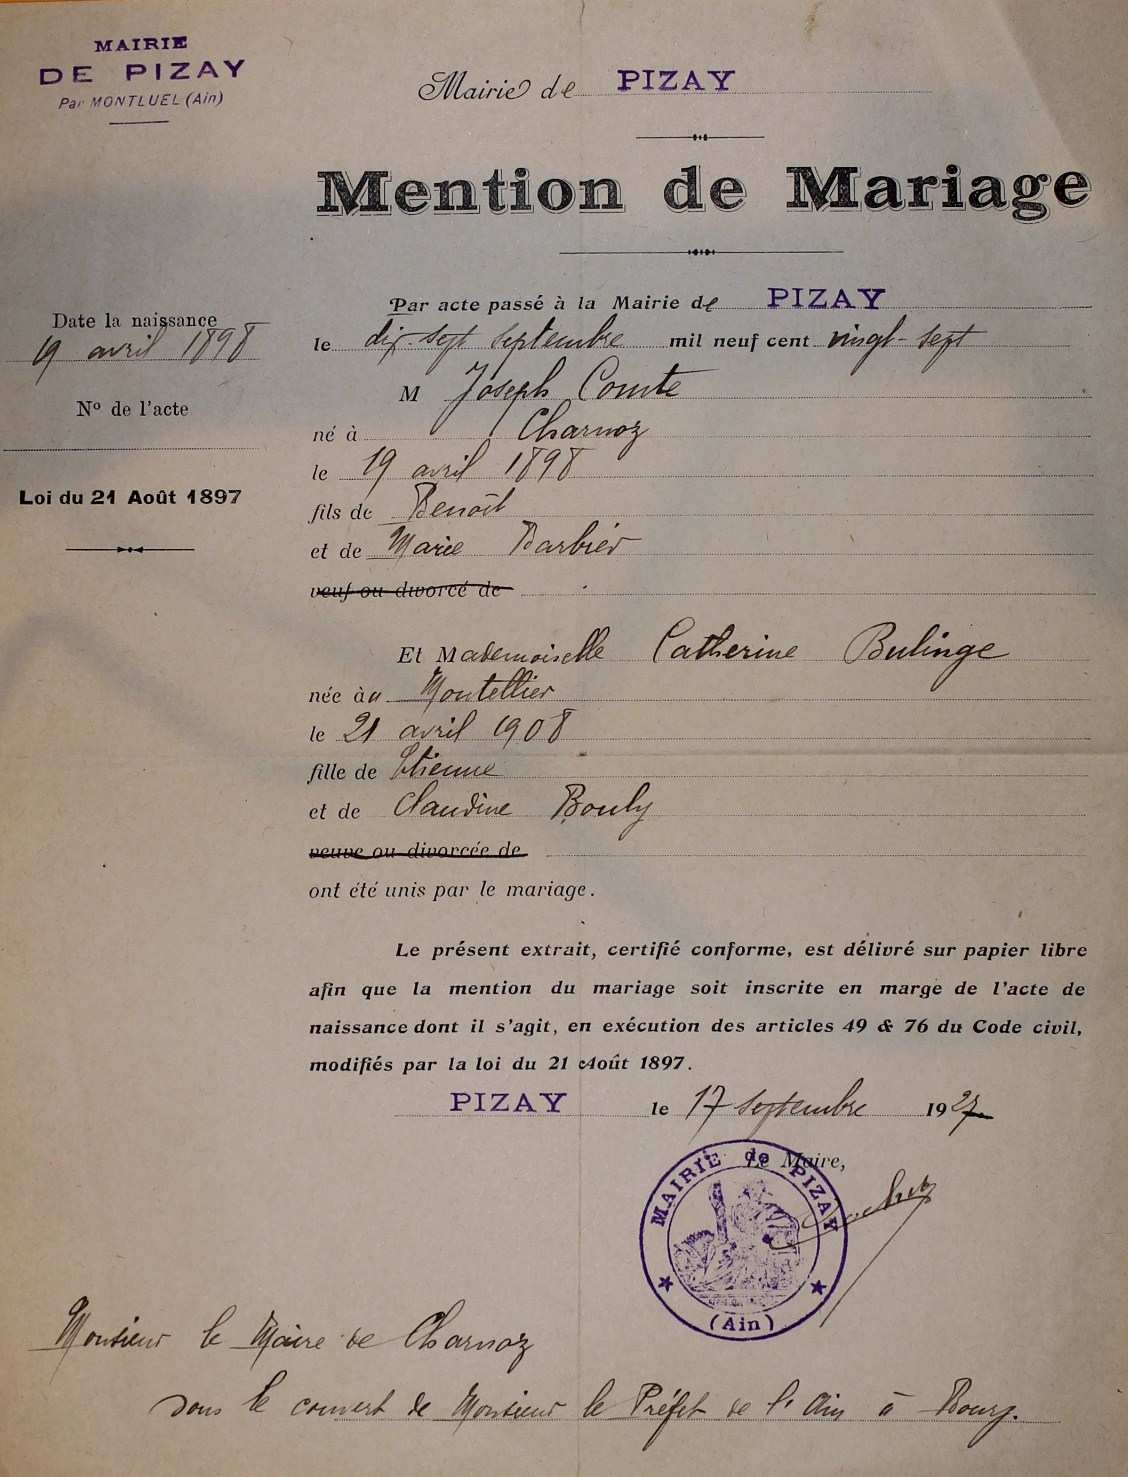 MAIRIE
DE PIZAY
Par MONTLUEL (Ain)
Mairie de PIZAY
Mention de Mariage
Date la naissance
19 avril 1898
N° de l'acte
Loi du 21 Août 1897
Par acte passé à la Mairie de PIZAY
le dix-sept septembre mil neuf cent vingt-sept
M Joseph Comte
né à Charnoz
le 19 avril 1898
fils de Benoît
et de Marie Barbier
veuf ou divorcé de
Et Mademoiselle Catherine Bulinge
née à u Montellier
le 21 avril 1908
fille de Etienne
et de Claudine Bouly
veuve ou divorcée de
ont été unis par le mariage.
Le présent extrait, certifié conforme, est délivré sur papier libre
afin que la mention du mariage soit inscrite en marge de l'acte de
naissance dont il s'agit, en exécution des articles 49 & 76 du Code civil,
modifiés par la loi du 21 Août 1897.
PIZAY le 17 septembre 1927.
Le Maire,
MAIRIE de PIZAY
(Ain)
Monsieur le Maire de Charnoz
sous le couvert de Monsieur le Préfet de l'Ain à Bourg.